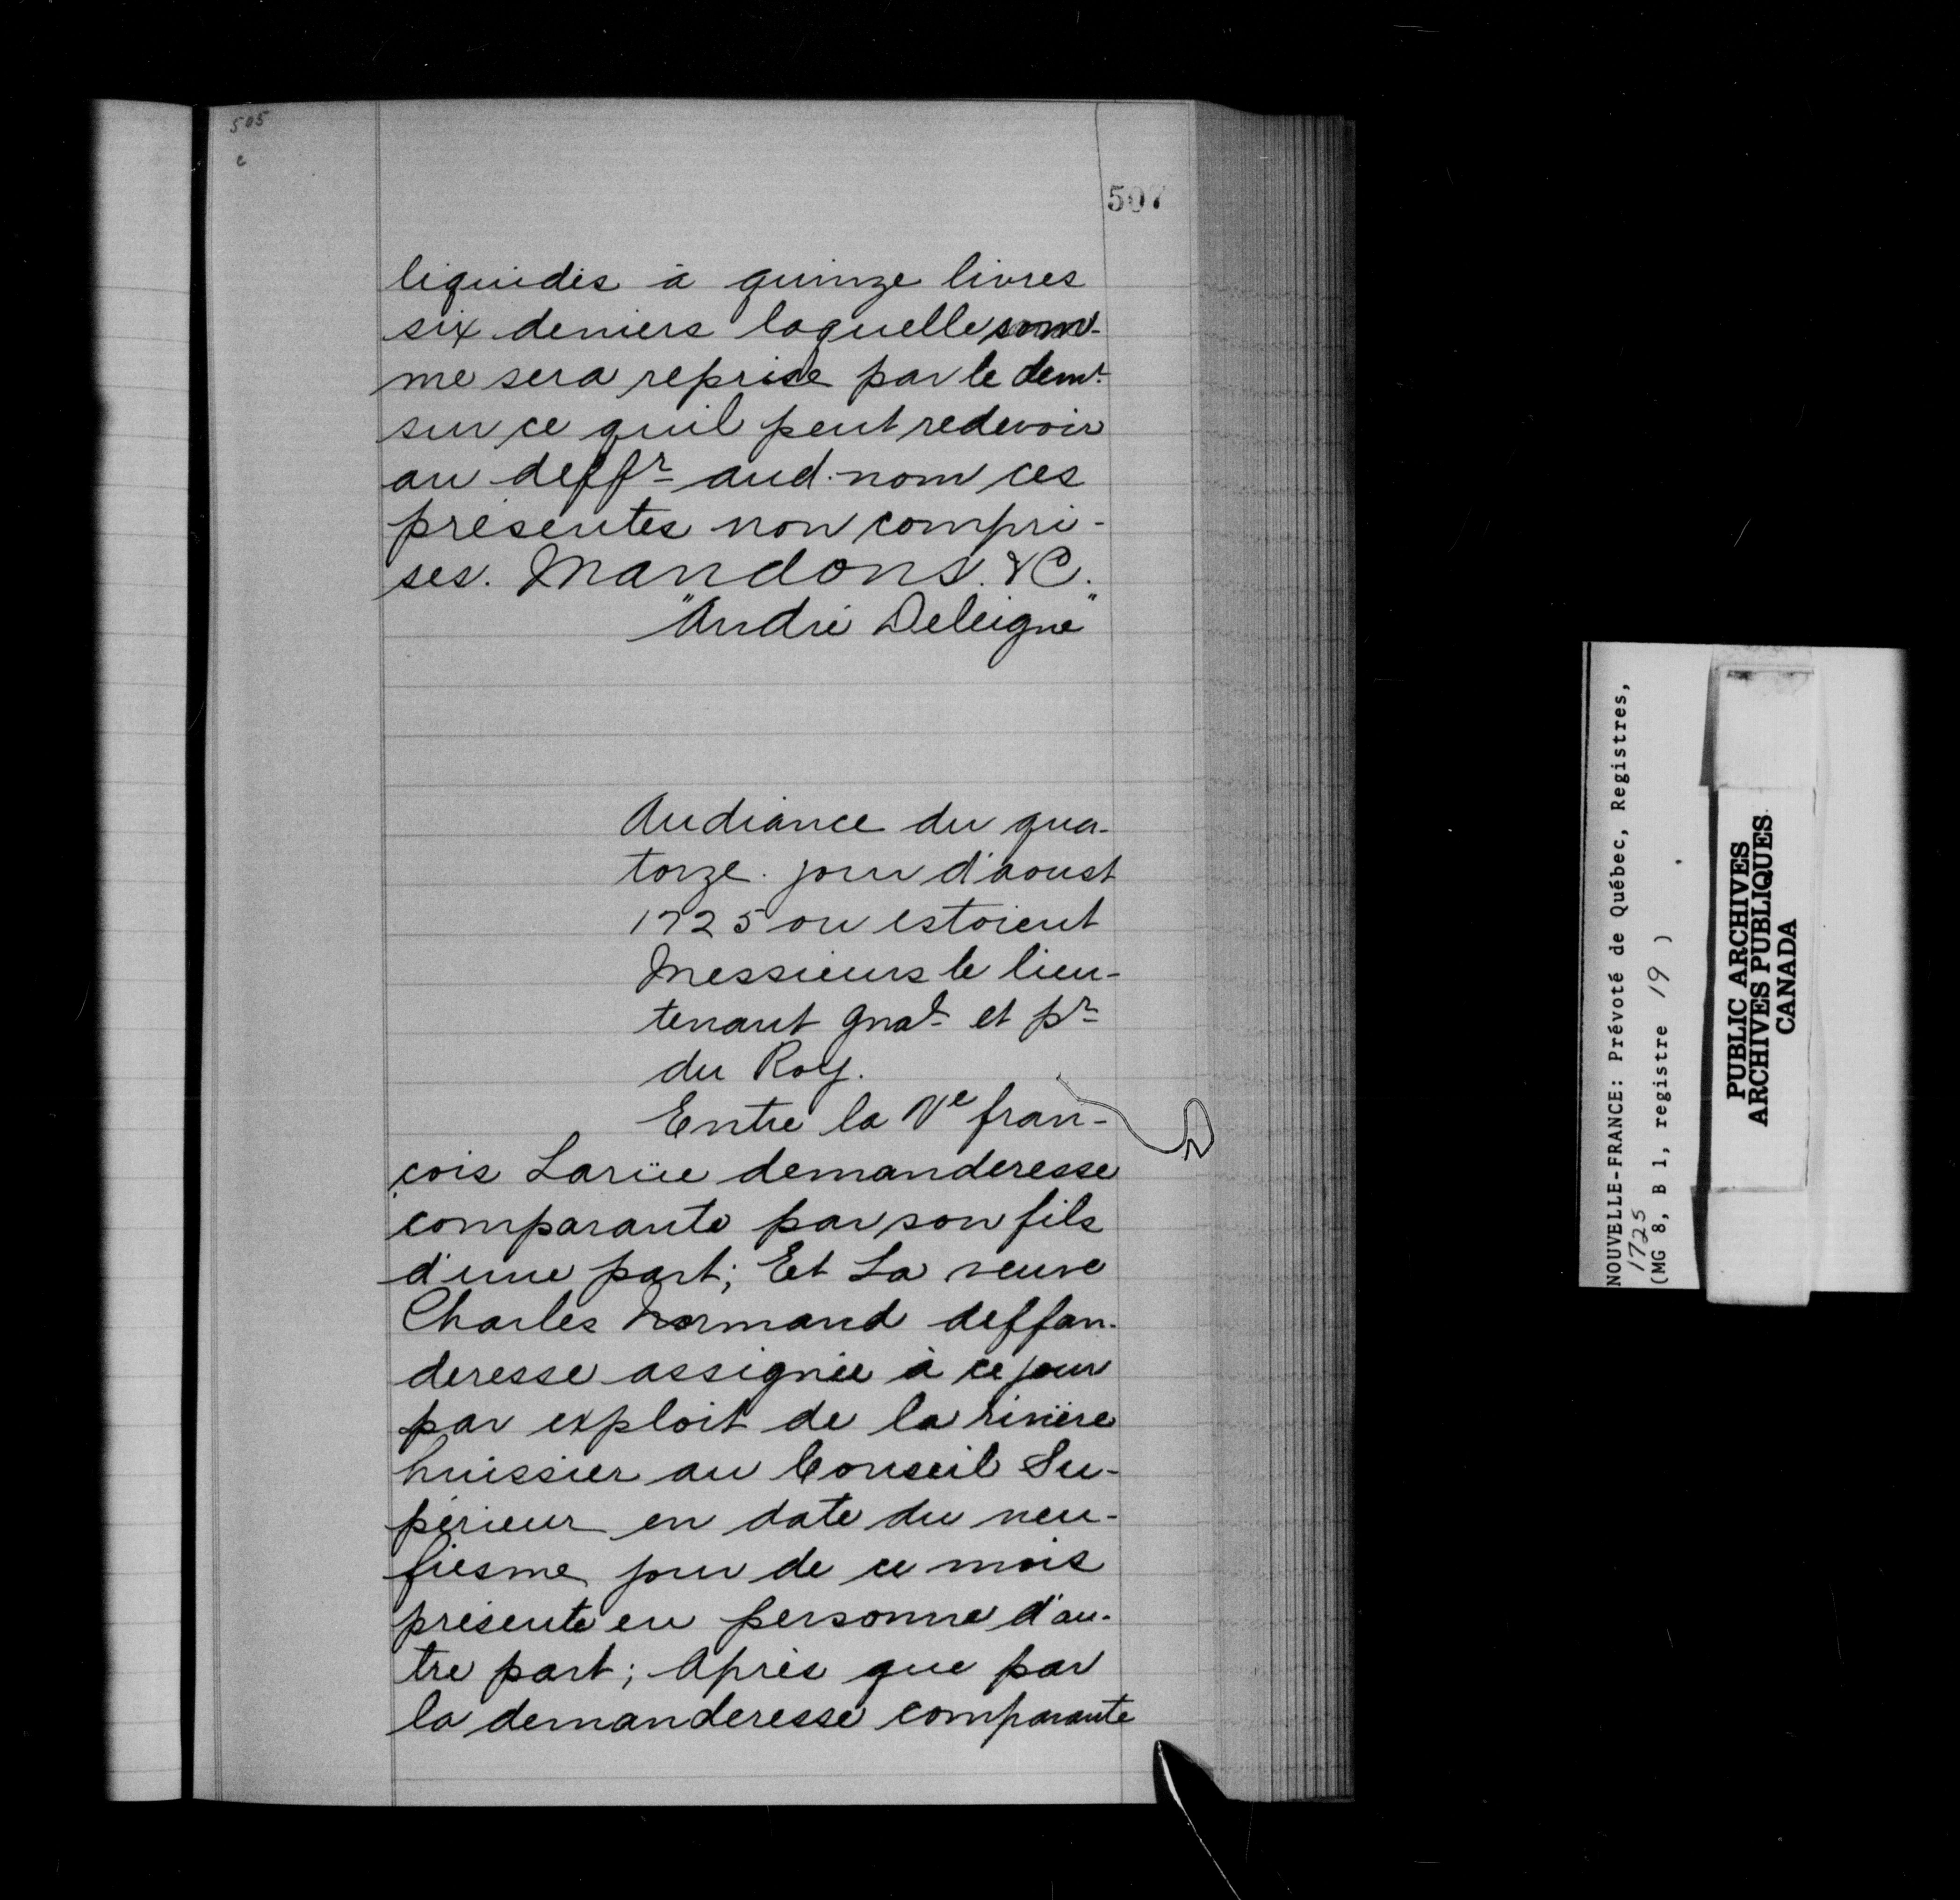 505
c
507
liquidés à quinze livres
six deniers laquelle som-
me sera reprise par le demr
sur ce quil peut redevoir
au deffr aud. nom ces
présentes non compri-
ses. Mandons. &C.
"André Deleigne"
Audiance du qua-
torze. jour d'aoust
1725 ou estoient
Messieurs le lieu-
tenant gnal et pr
du Roy.
Entre la Ve fran-
çois Larüe demanderesse
comparante par son fils
d'une part; Et La veuve
Charles Normand deffan-
deresse assignée à ce jour
par exploit de la rivière
huissier au Conseil Su-
périeur en date du neu-
fiesme jour de ce mois
présente en personne d'au-
tre part; Après que par
la demanderesse comparante
NOUVELLE-FRANCE: Prévoté de Québec, Registres,
1725
(MG 8, B 1, registre 19 )
PUBLIC ARCHIVES
ARCHIVES PUBLIQUES
CANADA